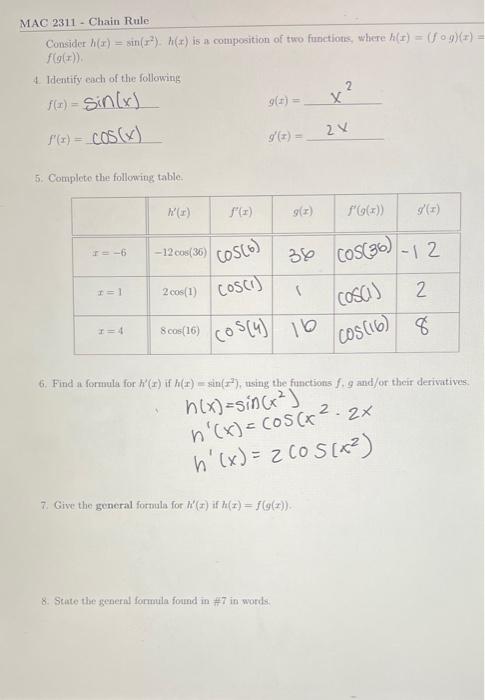 MAC 2311 - Chain Rule
Consider h(x) = sin(x²). h(x) is a composition of two functions, where h(x) = (f ∘ g)(x) =
f(g(x)).
4. Identify each of the following
f(x) = sin(x) g(x) = x²
f'(x) = cos(x) g'(x) = 2x
5. Complete the following table.
h'(x) f'(x) g(x) f'(g(x)) g'(x)
x = -6 -12 cos(36) cos(6) 36 cos(36) -12
x = 1 2 cos(1) cos(1) 1 cos(1) 2
x = 4 8 cos(16) cos(4) 16 cos(16) 8
6. Find a formula for h'(x) if h(x) = sin(x²), using the functions f, g and/or their derivatives.
h(x)=sin(x²)
h'(x)= cos(x² · 2x
h'(x)= 2cos(x²)
7. Give the general formula for h'(x) if h(x) = f(g(x)).
8. State the general formula found in #7 in words.